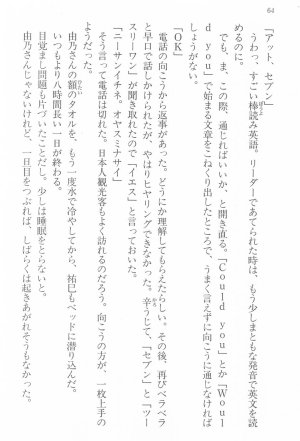 64
「アット、セブン」
うわっ、すごい棒読み英語。リーダーであてられた時は、もう少しまともな発音で英文を読
めるのに。
でも、ま、この際、通じればいいか、と開き直る。「Could you」とか「Woul
d you」で始まる文章をこねくり出したところで、うまく言えずに向こうに通じなければ
しょうがない。
「OK」
電話の向こうから返事があった。どうにか理解してもらえたらしい。その後、再びベラベラ
と早口で話しかけられたが、やはりヒヤリングできなかった。辛うじて、「セブン」と「ツー
スリーワン」が聞き取れたので「イエス」と言っておいた。
「ニーサンイチネ。オヤスミナサイ」
そう言って電話は切れた。日本人観光客もよく訪れるのだろう。向こうの方が、一枚上手の
ようだった。
由乃さんの額のタオルを、もう一度水で冷やしてから、祐巳もベッドに潜り込んだ。
いつもより八時間長い一日が終わる。
目覚まし問題も片づいたことだし、少しは睡眠をとらないと。
由乃さんじゃないけれど、一旦目をつぶれば、しばらくは起きあがれそうもなかった。